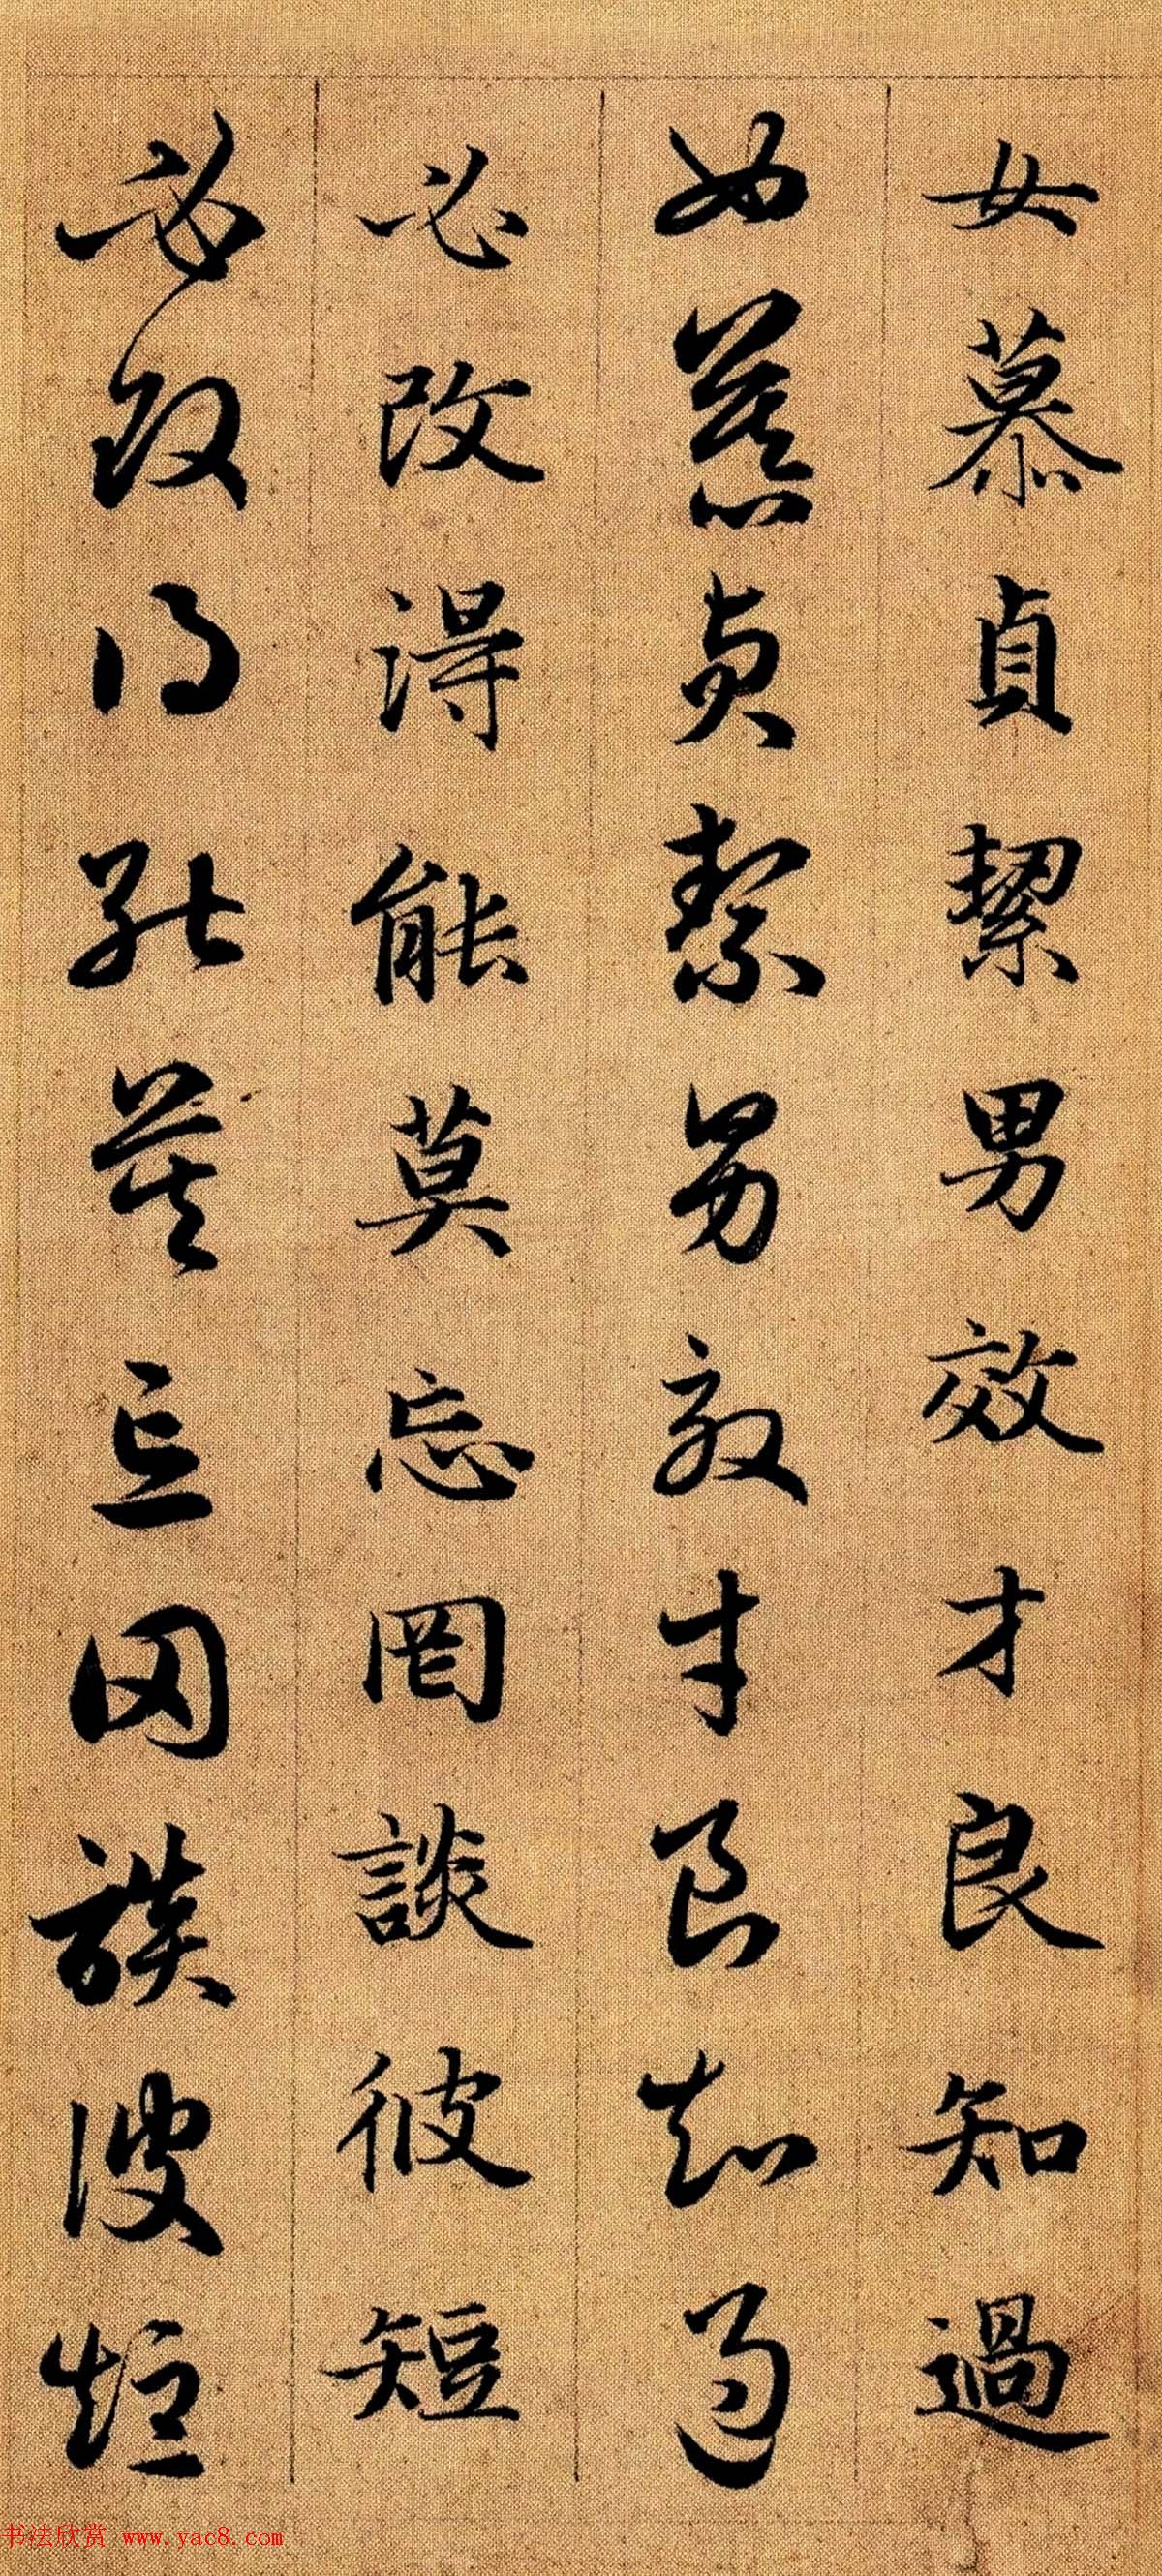 女慕貞絜男效才良知過
女慕貞絜男效才良知過
必改得能莫忘罔談彼短
必改得能莫忘罔談彼短
书法欣赏 www.yac8.com